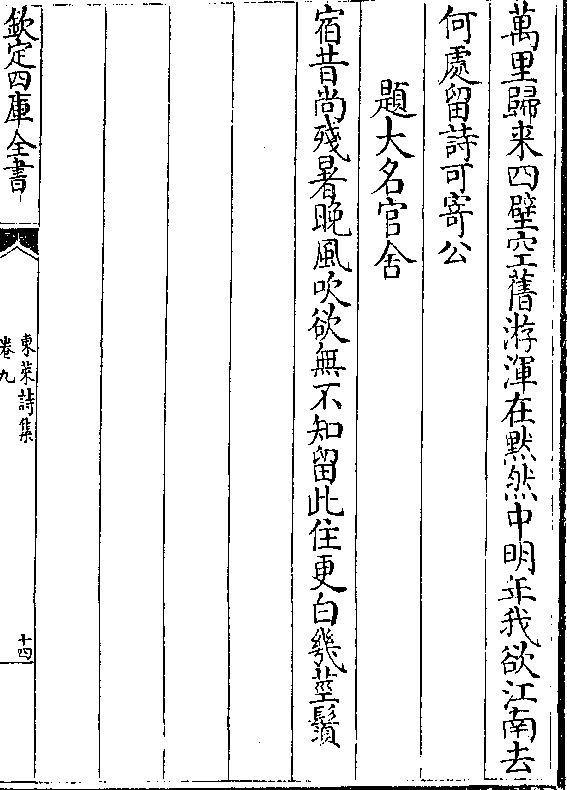 萬里歸来四壁空舊游渾在黙然中明年我欲江南去
何處留詩可寄公
題大名官舍
宿昔尚殘暑晩風吹欲無不知留此住更白幾莖鬚
欽定四庫全書
東萊詩集
卷九
十四